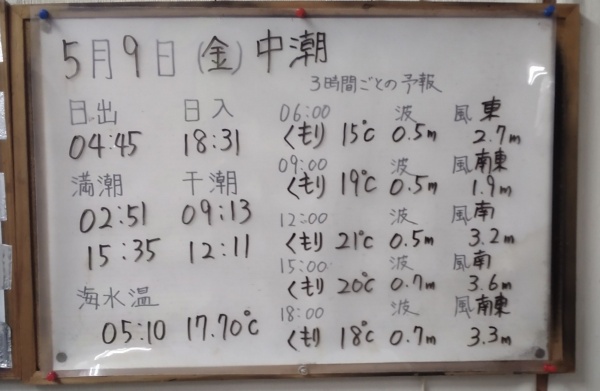 5月9日(金)中潮
日出 日入
04:45 18:31
満潮 干潮
02:51 09:13
15:35 12:11
海水温
05:10 17.70℃
3時間ごとの予報
06:00 波 風 東
くもり 15℃ 0.5m 2.7m
09:00 波 風 南東
くもり 19℃ 0.5m 1.9m
12:00 波 風 南
くもり 21℃ 0.5m 3.2m
15:00 波 風 南
くもり 20℃ 0.7m 3.6m
18:00 波 風 南東
くもり 18℃ 0.7m 3.3m